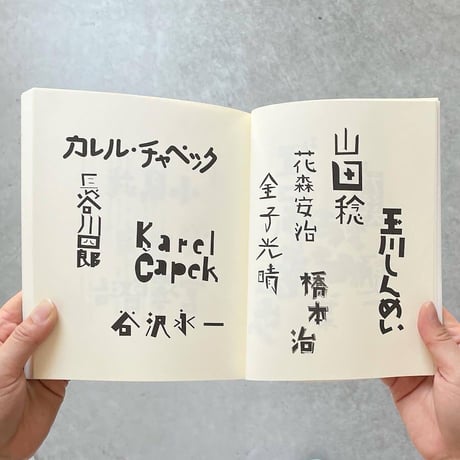 カレル・チャペック
長谷川四郎
Karel
Čapek
谷沢永一
山田稔
花森安治
金子光晴
橋本治
玉川しんめい